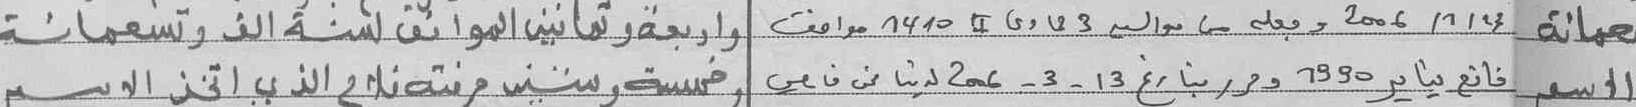 عمائة 2006 /1/ وجعله من مواليد 3 جمادى II 1410 موافق واربعة وثمانين الموافق لسنة الف وتسعمائة
الاسم فاتح يناير 1990 وحرر بتاريخ 13 - 3 - 2006 لدينا نحن وخمسة وستين الذي اتخذ الاسم